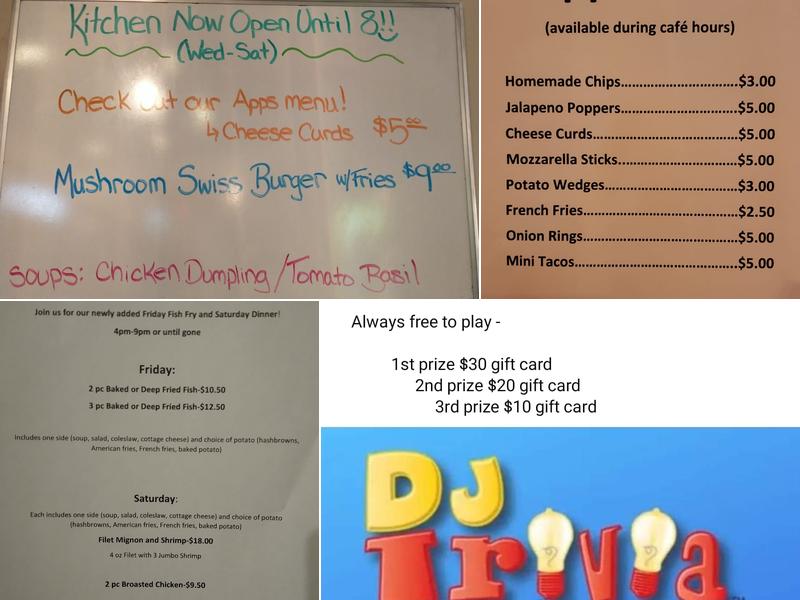 Kitchen Now Open Until 8!!
(Wed-Sat)
Check out our Apps menu!
↳ Cheese Curds $5.00
Mushroom Swiss Burger w/Fries $9.00
Soups: Chicken Dumpling / Tomato Basil
(available during café hours)
Homemade Chips……………………………$3.00
Jalapeno Poppers……………………………$5.00
Cheese Curds……………………………$5.00
Mozzarella Sticks……………………………$5.00
Potato Wedges……………………………$3.00
French Fries……………………………$2.50
Onion Rings……………………………$5.00
Mini Tacos……………………………$5.00
Join us for our newly added Friday Fish Fry and Saturday Dinner!
4pm-9pm or until gone
Friday:
2 pc Baked or Deep Fried Fish-$10.50
3 pc Baked or Deep Fried Fish-$12.50
Includes one side (soup, salad, coleslaw, cottage cheese) and choice of potato (hashbrowns,
American fries, French fries, baked potato)
Saturday:
Each includes one side (soup, salad, coleslaw, cottage cheese) and choice of potato
(hashbrowns, American fries, French fries, baked potato)
Filet Mignon and Shrimp-$18.00
4 oz Filet with 3 Jumbo Shrimp
2 pc Broasted Chicken-$9.50
Always free to play -
1st prize $30 gift card
2nd prize $20 gift card
3rd prize $10 gift card
DJ
Trivia